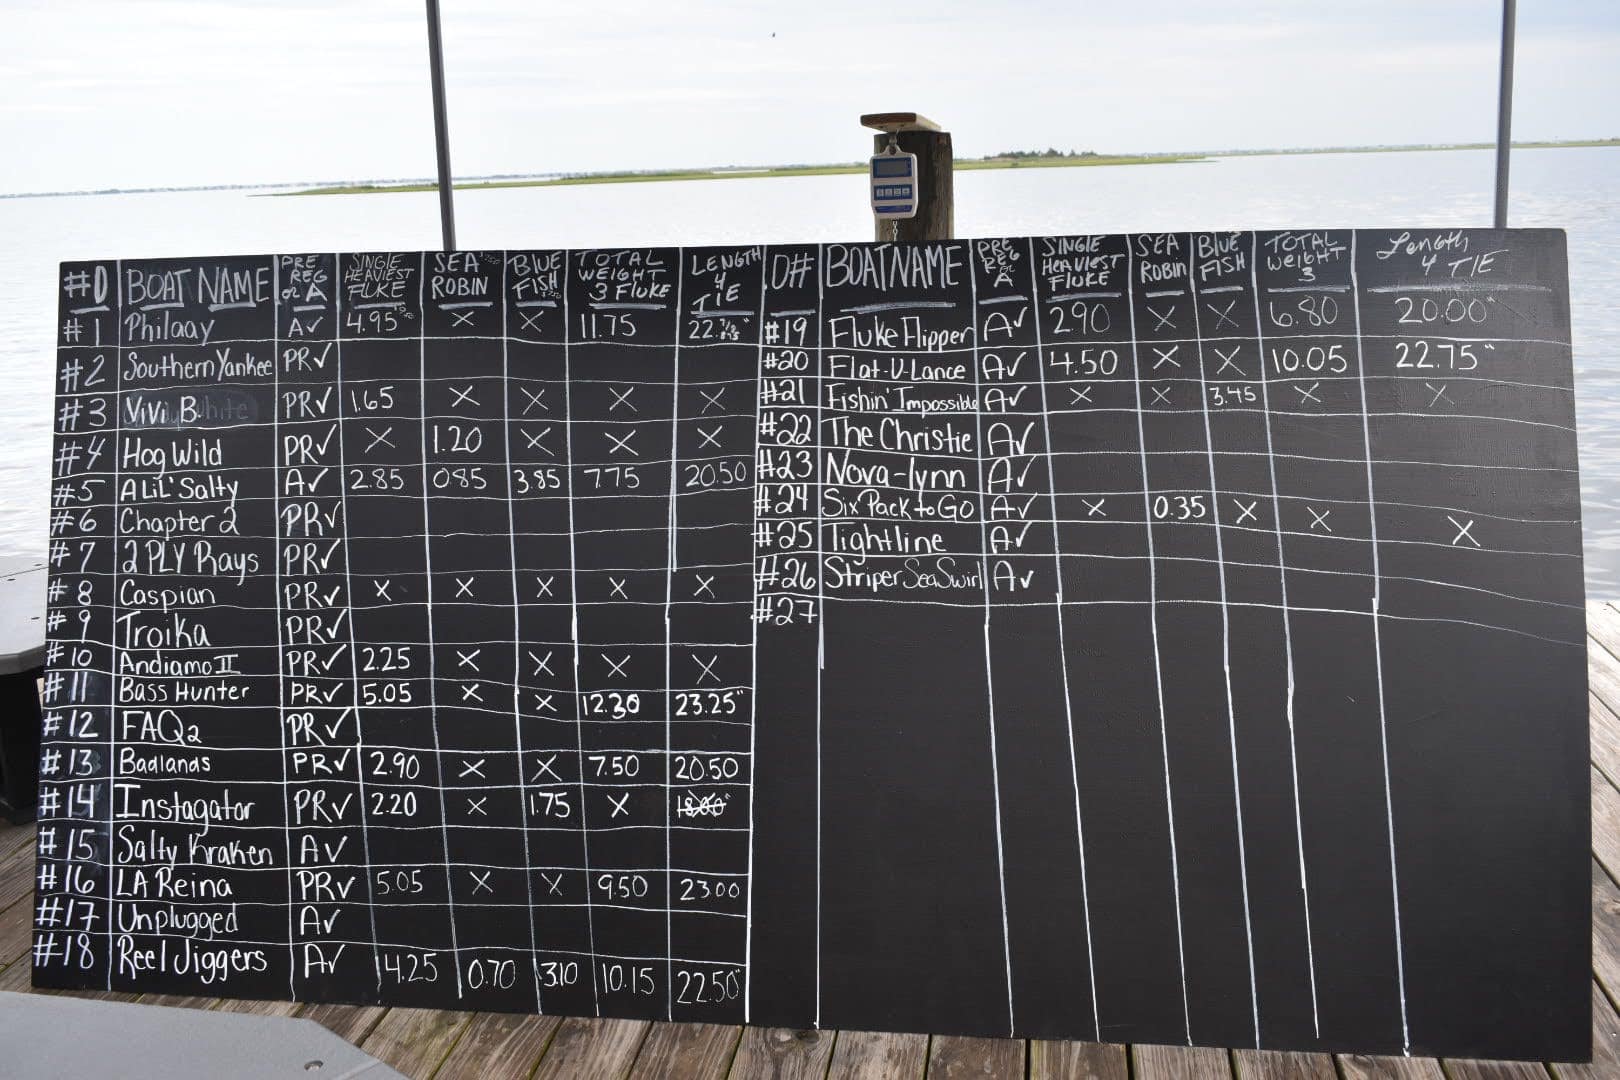 #D BOAT NAME PRE REG or A SINGLE HEAVIEST FLUKE SEA ROBIN BLUE FISH TOTAL WEIGHT 3 FLUKE LENGTH 4 TIE
#1 Philaay A✓ 4.95 X X 11.75
#2 Southern Yankee PR✓
#3 Vivi B. PR✓ 1.65 X X X X
#4 Hog Wild PR✓ X 1.20 X X X
#5 A Lil' Salty A✓ 2.85 0.85 3.85 7.75 20.50
#6 Chapter 2 PR✓
#7 2 PLY Rays PR✓
#8 Caspian PR✓ X X X X X
#9 Troika PR✓
#10 Andiamo II PR✓ 2.25 X X X X
#11 Bass Hunter PR✓ 5.05 X X 12.30 23.25"
#12 FAQ2 PR✓
#13 Badlands PR✓ 2.90 X X 7.50 20.50
#14 Instagator PR✓ 2.20 X 1.75 X
#15 Salty Kraken A✓
#16 LA Reina PR✓ 5.05 X X 9.50 23.00
#17 Unplugged A✓
#18 Reel Jiggers A✓ 4.25 0.70 3.10 10.15 22.50"
D# BOAT NAME PRE REG or A SINGLE HEAVIEST FLUKE SEA ROBIN BLUE FISH TOTAL WEIGHT 3 Length 4 TIE
#19 Fluke Flipper A✓ 2.90 X X 6.80 20.00"
#20 Flat-U-Lance A✓ 4.50 X X 10.05 22.75"
#21 Fishin' Impossible A✓ X X 3.45 X X
#22 The Christie A✓
#23 Nova-lynn A✓
#24 Six Pack to Go A✓ X 0.35 X X X
#25 Tightline A✓
#26 Striper Sea Swirl A✓
#27